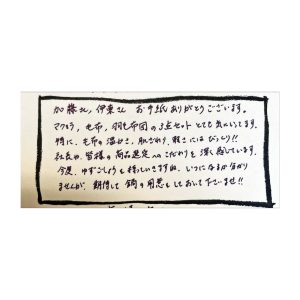 加藤さん、伊東さん お手紙ありがとうございます。
マクラ、毛布、羽毛布団の3点セットとても気にいってます。
特に、毛布の温かさ、肌ざわり、軽さにはびっくり!!
社長や、皆様の商品選定へのこだわりを深く感じています。
今度、ゆずこしょうも待っていますね。いつになるか分かり
ませんが、期待して鍋の用意もしておして下さいませ!!